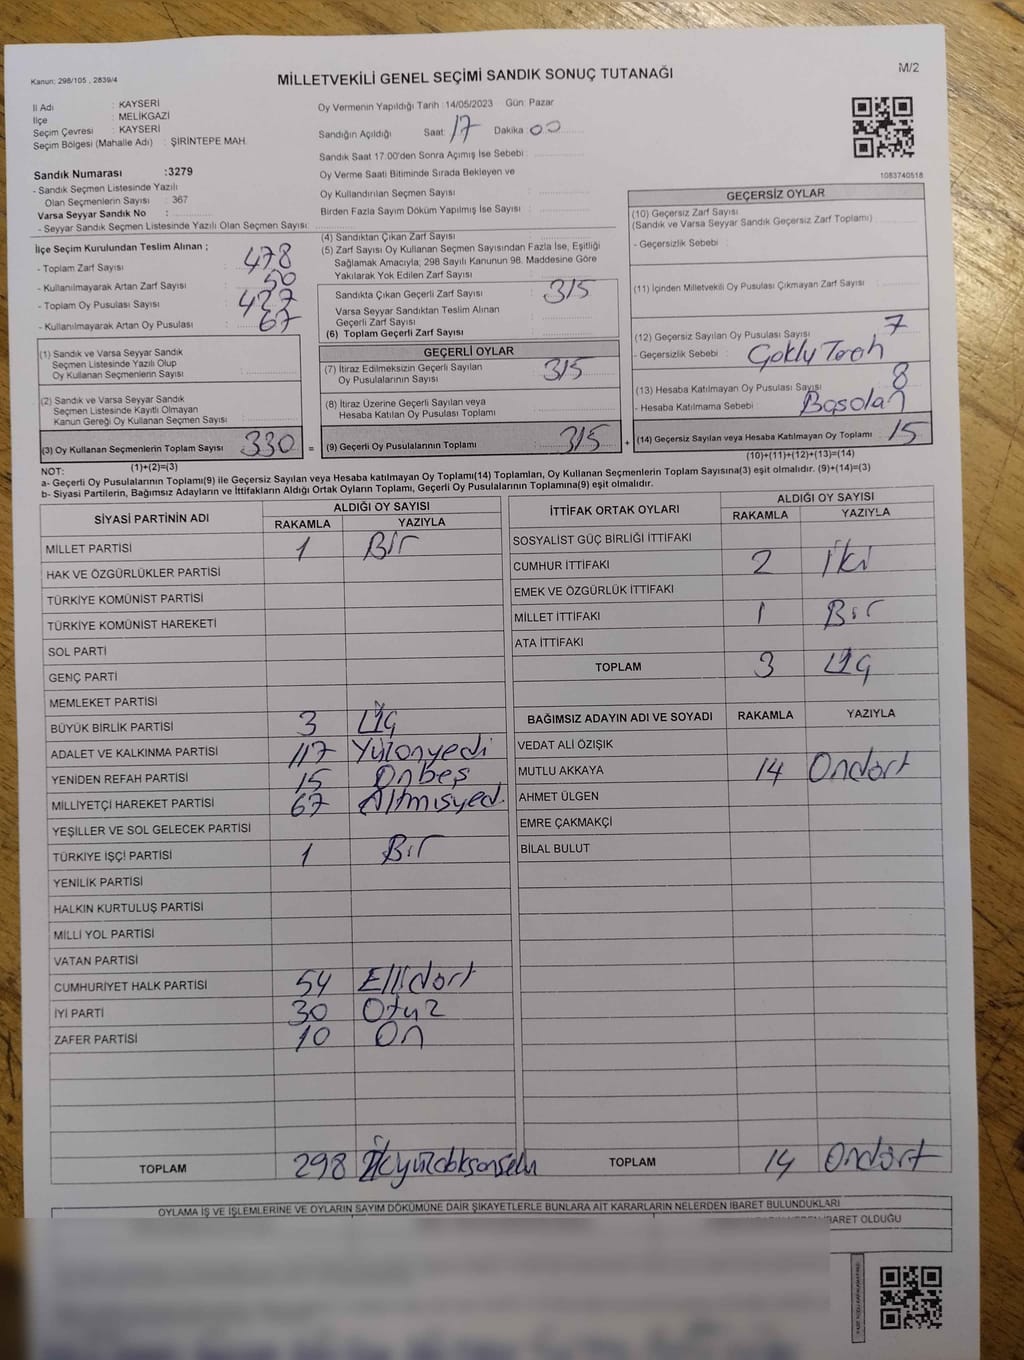 Kanun: 298/105 , 2839/4
MİLLETVEKİLİ GENEL SEÇİMİ SANDIK SONUÇ TUTANAĞI
M/2
İl Adı : KAYSERİ
İlçe : MELİKGAZİ
Seçim Çevresi : KAYSERİ
Seçim Bölgesi (Mahalle Adı) : ŞİRİNTEPE MAH.
Sandık Numarası :3279
- Sandık Seçmen Listesinde Yazılı
Olan Seçmenlerin Sayısı : 367
Varsa Seyyar Sandık No :
- Seyyar Sandık Seçmen Listesinde Yazılı Olan Seçmen Sayısı:
Oy Vermenin Yapıldığı Tarih :14/05/2023 Gün: Pazar
Sandığın Açıldığı Saat: 17 Dakika 00
Sandık Saat 17.00'den Sonra Açımış İse Sebebi :
Oy Verme Saati Bitiminde Sırada Bekleyen ve
Oy Kullandırılan Seçmen Sayısı :
Birden Fazla Sayım Döküm Yapılmış İse Sayısı :
1083740518
İlçe Seçim Kurulundan Teslim Alınan ;
- Toplam Zarf Sayısı : 478
- Kullanılmayarak Artan Zarf Sayısı : 50
- Toplam Oy Pusulası Sayısı : 427
- Kullanılmayarak Artan Oy Pusulası : 67
(1) Sandık ve Varsa Seyyar Sandık
Seçmen Listesinde Yazılı Olup
Oy Kullanan Seçmenlerin Sayısı :
(2) Sandık ve Varsa Seyyar Sandık
Seçmen Listesinde Kayıtlı Olmayan
Kanun Gereği Oy Kullanan Seçmen Sayısı :
(3) Oy Kullanan Seçmenlerin Toplam Sayısı : 330 =
(1)+(2)=(3)
(4) Sandıktan Çıkan Zarf Sayısı :
(5) Zarf Sayısı Oy Kullanan Seçmen Sayısından Fazla İse, Eşitliği
Sağlamak Amacıyla, 298 Sayılı Kanunun 98. Maddesine Göre
Yakılarak Yok Edilen Zarf Sayısı :
Sandıkta Çıkan Geçerli Zarf Sayısı : 315
Varsa Seyyar Sandıktan Teslim Alınan
Geçerli Zarf Sayısı :
(6) Toplam Geçerli Zarf Sayısı :
GEÇERLİ OYLAR
(7) İtiraz Edilmeksizin Geçerli Sayılan
Oy Pusulalarının Sayısı : 315
(8) İtiraz Üzerine Geçerli Sayılan veya
Hesaba Katılan Oy Pusulası Toplamı :
(9) Geçerli Oy Pusulalarının Toplamı : 315 +
GEÇERSİZ OYLAR
(10) Geçersiz Zarf Sayısı
(Sandık ve Varsa Seyyar Sandık Geçersiz Zarf Toplamı) :
- Geçersizlik Sebebi :
(11) İçinden Milletvekili Oy Pusulası Çıkmayan Zarf Sayısı :
(12) Geçersiz Sayılan Oy Pusulası Sayısı : 7
- Geçersizlik Sebebi :
(13) Hesaba Katılmayan Oy Pusulası Sayısı : 8
- Hesaba Katılmama Sebebi :
(14) Geçersiz Sayılan veya Hesaba Katılmayan Oy Toplamı : 15
(10)+(11)+(12)+(13)=(14)
NOT:
a- Geçerli Oy Pusulalarının Toplamı(9) ile Geçersiz Sayılan veya Hesaba katılmayan Oy Toplamı(14) Toplamları, Oy Kullanan Seçmenlerin Toplam Sayısına(3) eşit olmalıdır. (9)+(14)=(3)
b- Siyasi Partilerin, Bağımsız Adayların ve İttifakların Aldığı Ortak Oyların Toplamı, Geçerli Oy Pusulalarının Toplamına(9) eşit olmalıdır.
SİYASİ PARTİNİN ADI ALDIĞI OY SAYISI
RAKAMLA YAZIYLA
MİLLET PARTİSİ 1 Bir
HAK VE ÖZGÜRLÜKLER PARTİSİ
TÜRKİYE KOMÜNİST PARTİSİ
TÜRKİYE KOMÜNİST HAREKETİ
SOL PARTİ
GENÇ PARTİ
MEMLEKET PARTİSİ
BÜYÜK BİRLİK PARTİSİ 3 Üç
ADALET VE KALKINMA PARTİSİ 117 Yüzonyedi
YENİDEN REFAH PARTİSİ 15 Onbeş
MİLLİYETÇİ HAREKET PARTİSİ 67 Altmışyed
YEŞİLLER VE SOL GELECEK PARTİSİ
TÜRKİYE İŞÇİ PARTİSİ 1 Bir
YENİLİK PARTİSİ
HALKIN KURTULUŞ PARTİSİ
MİLLİ YOL PARTİSİ
VATAN PARTİSİ
CUMHURİYET HALK PARTİSİ 54 Ellidört
İYİ PARTİ 30 Otuz
ZAFER PARTİSİ 10 On
TOPLAM 298 İkiyüzdoksansekiz
İTTİFAK ORTAK OYLARI ALDIĞI OY SAYISI
RAKAMLA YAZIYLA
SOSYALİST GÜÇ BİRLİĞİ İTTİFAKI
CUMHUR İTTİFAKI 2 İki
EMEK VE ÖZGÜRLÜK İTTİFAKI
MİLLET İTTİFAKI 1 Bir
ATA İTTİFAKI
TOPLAM 3 Üç
BAĞIMSIZ ADAYIN ADI VE SOYADI RAKAMLA YAZIYLA
VEDAT ALİ ÖZIŞIK
MUTLU AKKAYA 14 Ondört
AHMET ÜLGEN
EMRE ÇAKMAKÇİ
BİLAL BULUT
TOPLAM 14 Ondört
OYLAMA İŞ VE İŞLEMLERİNE VE OYLARIN SAYIM DÖKÜMÜNE DAİR ŞİKAYETLERLE BUNLARA AİT KARARLARIN NELERDEN İBARET BULUNDUKLARI
İBARET OLDUĞU